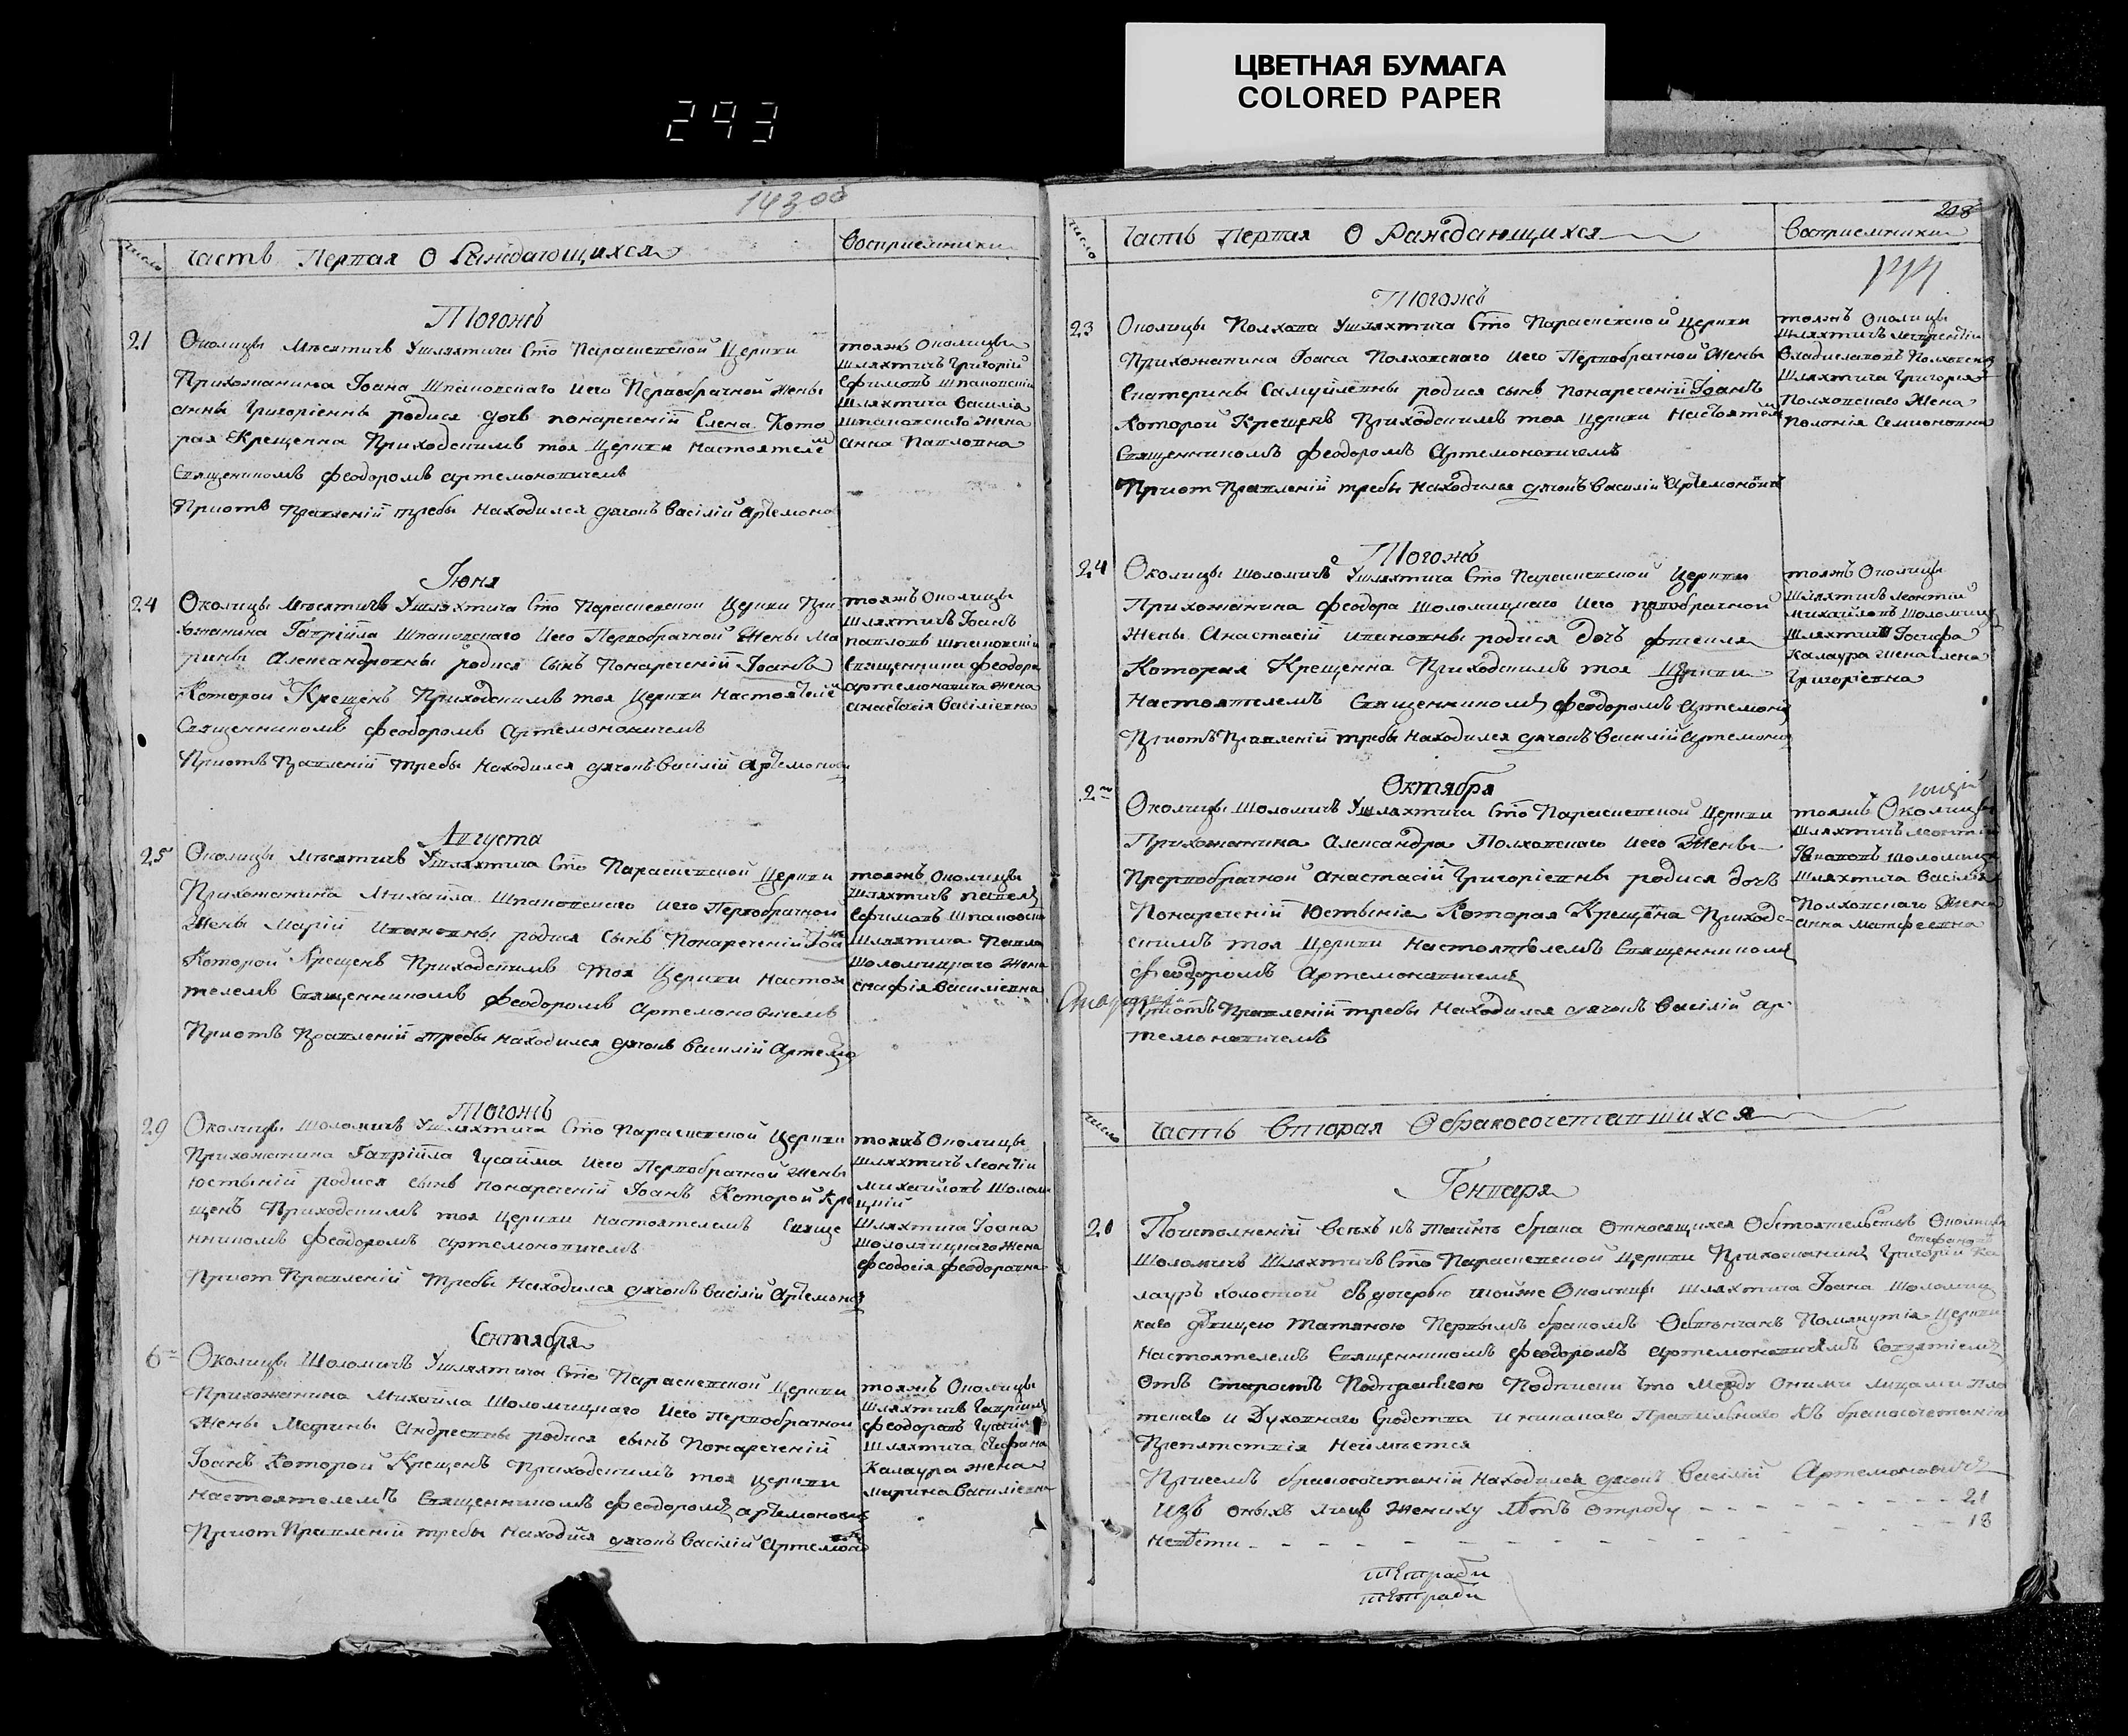 ЦВЕТНАЯ БУМАГА
COLORED PAPER
293
14300
число
часть Первая О Раждающихся
Восприемники
Тогожъ
21
Околицы Мъсятичъ Ушляхтича Сто Параскевской Церкви
Прихожанина Іоана Шпаковскаго иего Первобрачной Жены
анны Григоріенны родися дочъ нонареченій Елена Кото
рая Крещенна Приходскимъ тоя Церкви Настоятелем
Священникомъ феодоромъ артемоновичемъ
Приотъ Правленій требы Находился дячокъ Василій артемоно
тояжъ Околицы
Шляхтичъ Григорій
Ефимовъ Шпаковскій
Шляхтича Василія
Шпаковскаго Жена
анна Павловна
Іюня
24
Околицы Мъсятичъ Ушляхтича Сто Параскевской Церкви При
хожанина Гавріила Шпаковскаго иего Первобрачной Жены Ма
рины Александровны родися Сынъ Понареченій Іоанъ
Которой Крещенъ Приходскимъ тоя Церкви Настоятелем
Священникомъ феодоромъ Артемоновичемъ
Приотъ Правленій требы Находился дячокъ Василій Артемонов
тояжъ Околицы
Шляхтичъ Іоанъ
Павловъ Шпаковскій
Священника феодора
артемоновича жена
анастасія Василіевна
Августа
25
Околицы Мъсятичъ Ушляхтича Сто Параскевской Церкви
Прихожанина Михаила Шпаковскаго иего Первобрачной
Жены Маріи Ивановны родися Сынъ Понареченій Іоа
Которой Крещенъ Приходскимъ тоя Церкви Настоя
телемъ Священникомъ феодоромъ Артемоновичемъ
Приотъ Правленій требы Находился дячокъ Василій Артемо
тояжъ Околицы
Шляхтичъ
Ефимовъ Шпаковски
Шляхтича Павла
Шоломицкаго Жена
Василіевна
Тогожъ
29
Околицы Шоломичъ Ушляхтича Сто Параскевской Церкви
Прихожанина Гавріила Гусайма иего Первобрачной Жены
Юстыніи родися сынъ понареченій Іоанъ Которой Кре
щенъ Приходскимъ тоя Церкви Настоятелемъ Свяще
нникомъ феодоромъ артемоновичемъ
Приот Правленій требы Находился дячокъ Василій Артемонов
тояжъ Околицы
Шляхтичъ Леонтій
Михайловъ Шоломи
цкій
Шляхтича Іоана
Шоломицкаго Жена
феодосія феодоровна
Сентября
6
Околицы Шоломичъ Ушляхтича Сто Параскевской Церкви
Прихожанина Михаила Шоломицкаго иего Первобрачной
Жены Марины Андреевны родися сынъ Понареченій
Іоанъ Которой Крещенъ Приходскимъ тоя церкви
Настоятелемъ Священникомъ феодоромъ артемонович
Приот Правленій требы Находися дячокъ Василій Артемоно
тояжъ Околицы
Шляхтичъ Гавріилъ
феодоровъ
Шляхтича Стефана
Калаура жена
Марина Василіевна
208
число
часть Первая О Раждающихся
Восприемники
Тогожъ
23
Околицы Полхова Ушляхтича Сто Параскевской Церкви
Прихожанина Іоана Полховскаго иего Первобрачной Жены
Екатерины Самуйлевны родися сынъ понареченій Іоанъ
Которой Крещенъ Приходскимъ тоя Церкви Настоятелем
Священникомъ феодоромъ Артемоновичемъ
Приот Правленій требы Находился дячокъ Василій Артемонович
тояжъ Околицы
Шляхтичъ
Владиславовъ Полховски
Шляхтича Григорія
Полховскаго Жена
Полонія Семионовна
Тогожъ
24
Околицы Шоломичъ Ушляхтича Сто Параскевской Церкви
Прихожанина феодора Шоломицкаго иего
Жены Анастасіи Ивановны родися Дочъ фтекля
Которая Крещенна Приходскимъ тоя Церкви
Настоятелемъ Священникомъ феодоромъ Артемонов
Приотъ Правленій требы Находился дячокъ Василій Артемонов
тояжъ Околицы
Шляхтичъ Леонтій
Михайловъ Шоломицк
Шляхтича Іосифа
Калаура жена Елена
Григоріевна
Октября
2
Околицы Шоломичъ Ушляхтича Сто Параскевской Церкви
Прихожанина Александра Полховскаго иего Жены
Прервобрачной Анастасіи Григоріевны родися дочъ
Понареченій Юстынія Которая Крещена Приходс
кимъ тоя Церкви Настоятелемъ Священникомъ
феодоромъ Артемоновичемъ
Приотъ Правленій требы Находился дячокъ Василій Ар
темоновичемъ
тояжъ Околицы
Шляхтичъ Леонтій
Шоломицк
Шляхтича Василія
Полховскаго Жена
анна Матфеевна
число
часть Вторая Обракосочетавшихся
Генваря
20
Поисполненій Всѣхъ къ таинъ брака Относящихся Обстоятельствъ Околицы
Стефановъ
Шоломичъ Шляхтичъ Сто Параскевской Церкви Прихожанинъ Григорій Ка
лауръ холостой съ дочерью тойже Околицы Шляхтича Іоана Шоломиц
каго дѣвицею Татяною Первымъ бракомъ Обвѣнчанъ Помянутія Церкви
Настоятелемъ Священникомъ феодоромъ артемоновичемъ Совзятіемъ
Отъ Старостъ Подприсягою Подписки что Между Оними лицами пло
тскаго и Духовнаго Сродства иникакаго Правильнаго къ бракосочетанію
Препятствія Неимѣется
Присемъ бракосочетаній находился дячокъ Василій Артемоновичъ
Изъ оныхъ лицъ Жениху лѣтъ отроду - - - - - - - - 21
Невѣсти - - - - - - - - 18